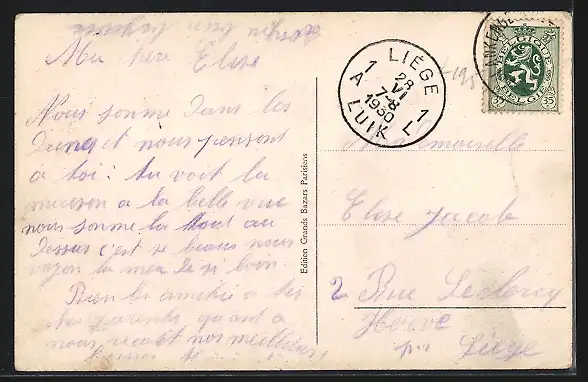 Ma chère Elise
Nous somme dans les
Dunes et nous pensont
a toi : tu voit la
maison a la belle vue
nous somme la tout au
Dessus c'est se beaus nous
voyon la mer de si loin.
Bien les amitiés a tes
cher parents quant a
nous recoit nos meilleurs
Edition Grands Bazars Parisiens
LIÉGE 1
1 A
28
VI
7-8
1930
LUIK L
BELGIQUE
BELGIË
35 35
Mademoiselle
Elise Jacob
2 Rue Leclercq
Herve
prs Liége